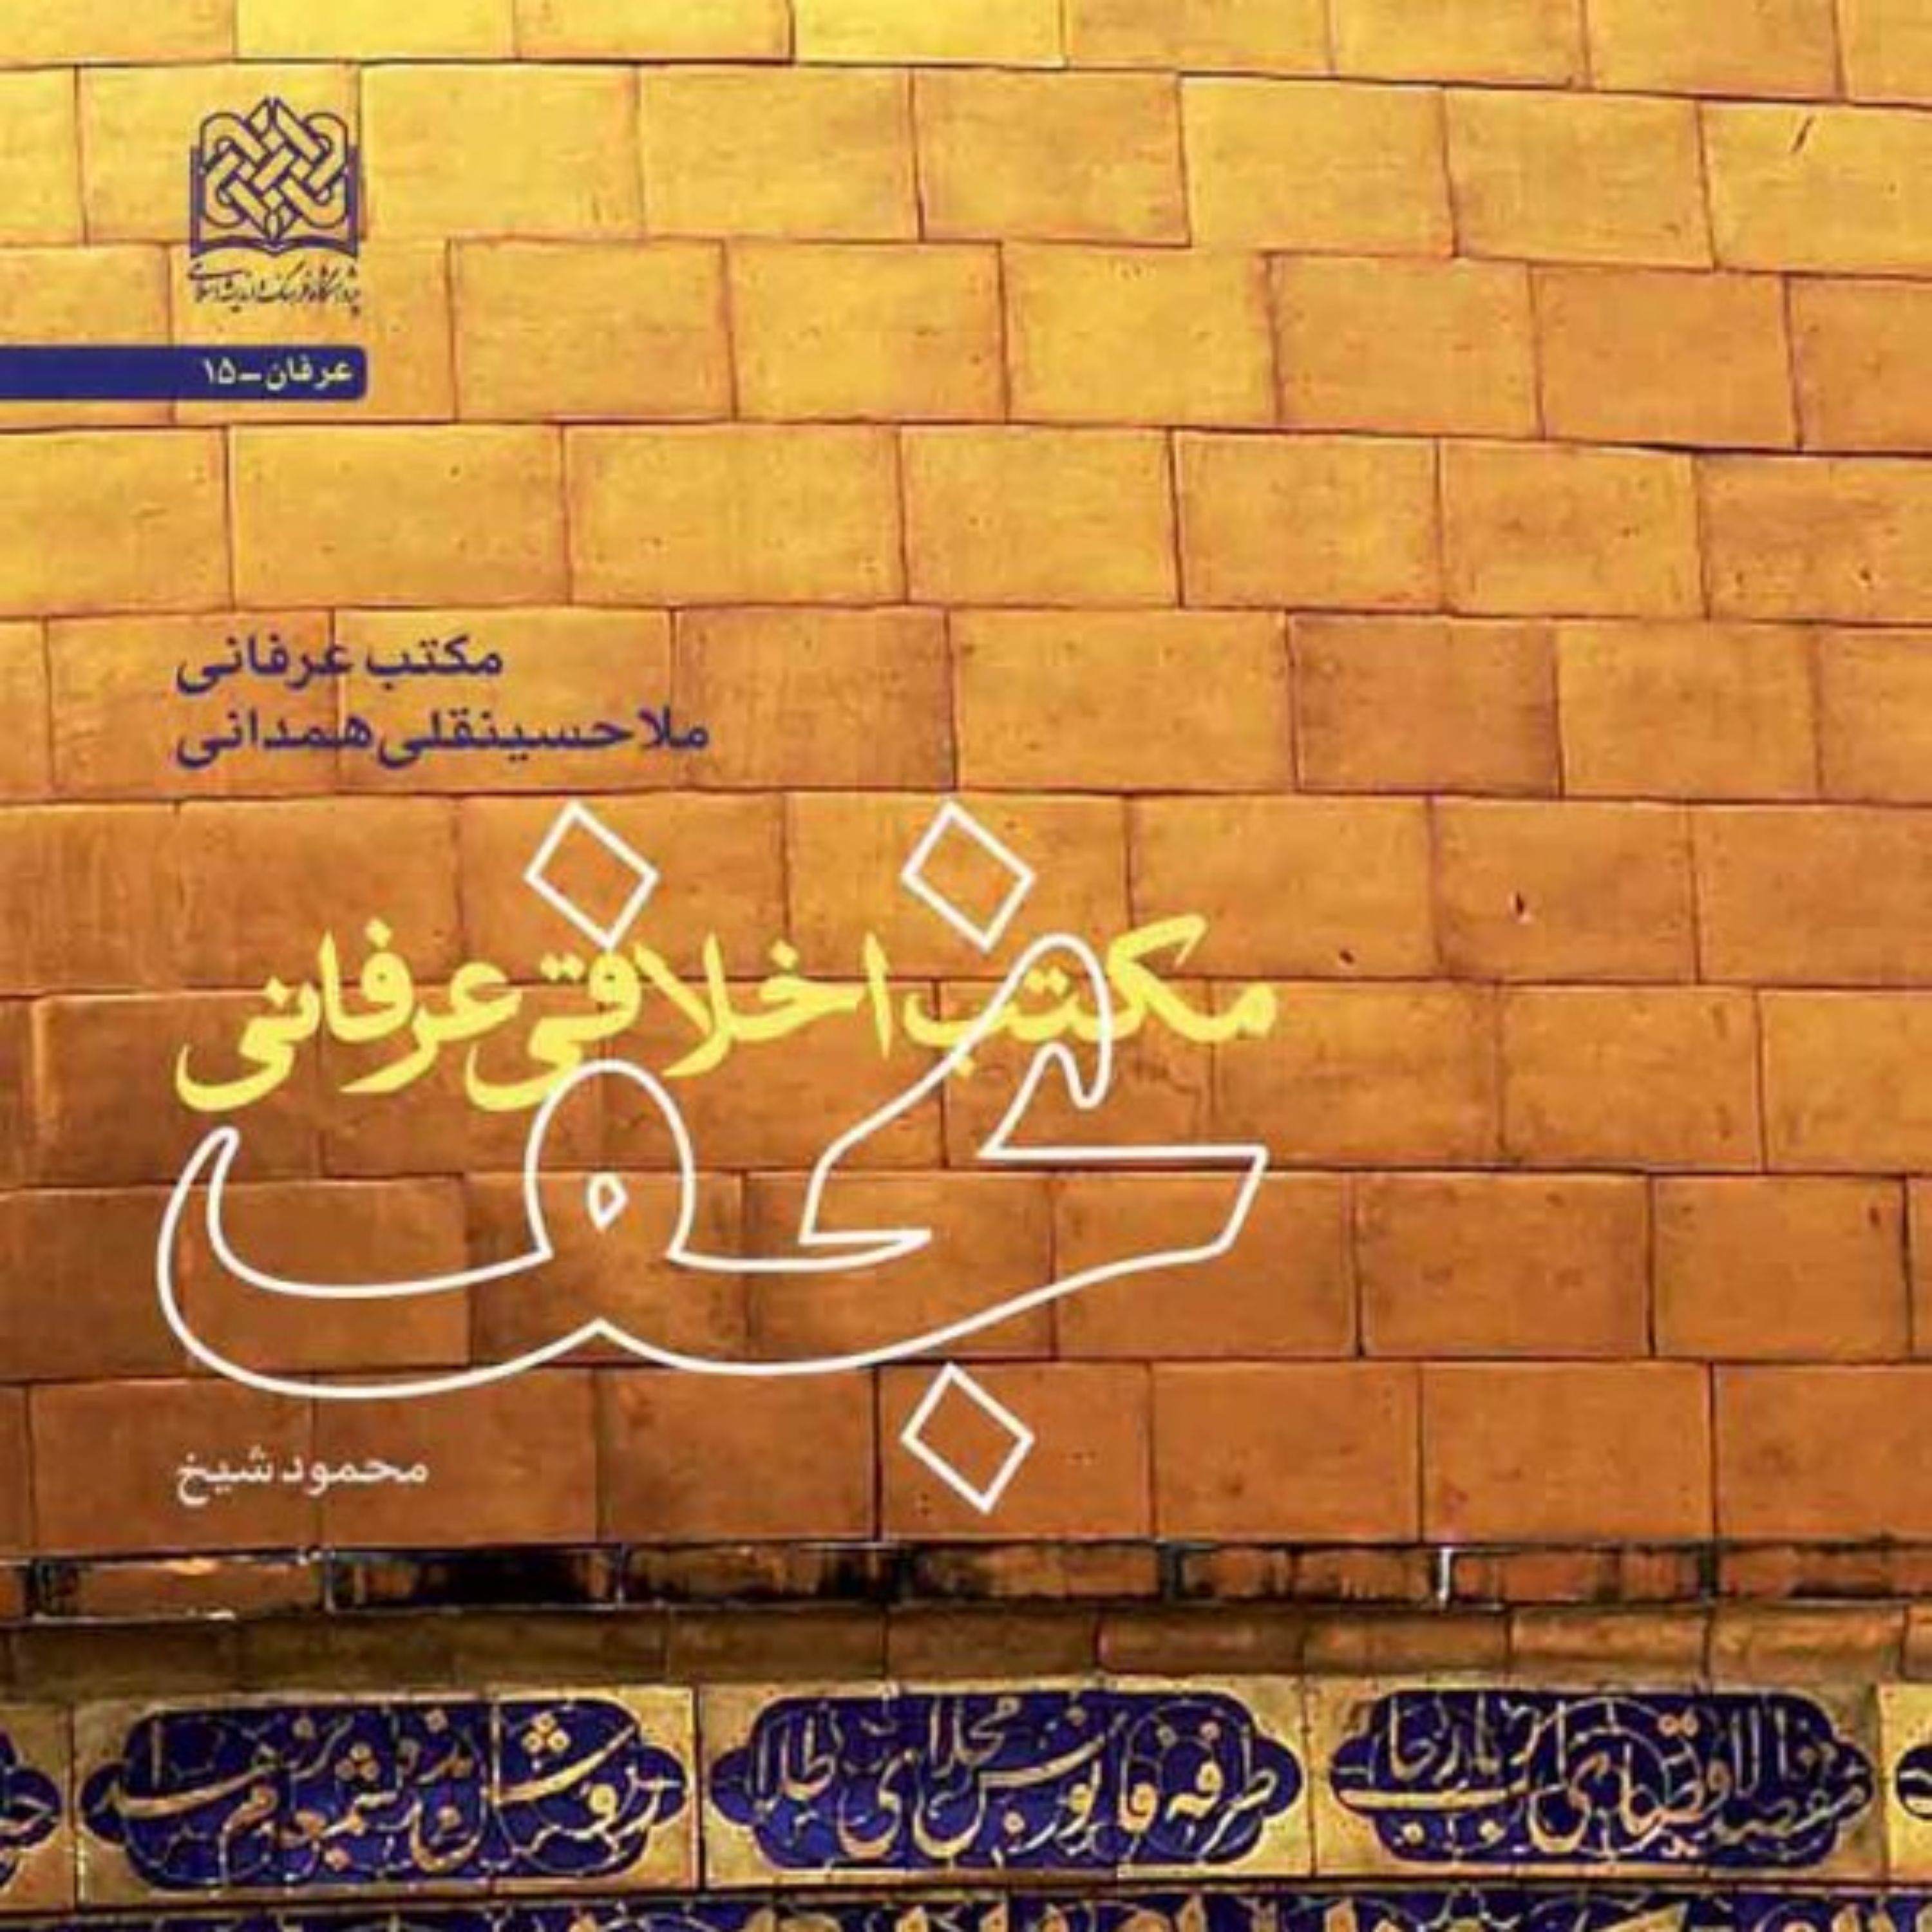 پژوهشگاه فرهنگ و اندیشه اسلامی
عرفان-۱۵
مکتب عرفانی
ملاحسینقلی همدانی
مکتب اخلاقی عرفانی
نجف
محمود شیخ
طرفه فانوس مجلای طلا